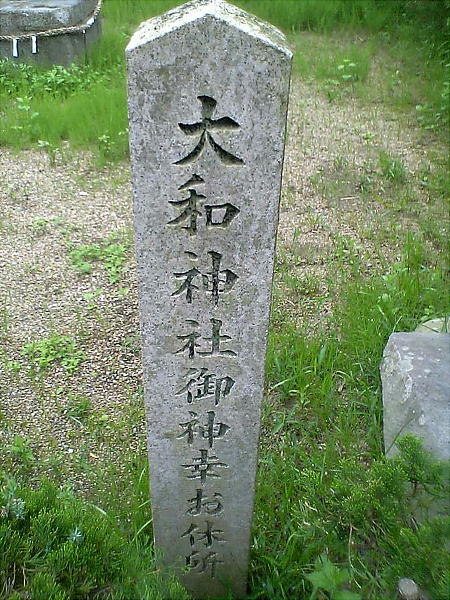 大和神社御神幸お休所